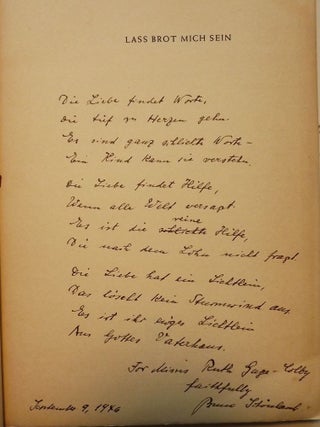 LASS BROT MICH SEIN
Die Liebe findet Worte,
die tief zu Herzen gehn.
Es sind ganz schlichte Worte –
Ein Kind kann sie verstehn.
Die Liebe findet Hilfe,
Wenn alle Welt versagt.
reine
Es ist die schlichte Hilfe,
Die nach dem Lohn nicht fragt.
Die Liebe hat ein Lichtlein,
Das löscht kein Sturmwind aus.
Es ist ihr ewges Lichtlein
Aus Gottes Vaterhaus.
For Ruth Gage-Colby
faithfully
9, 1946